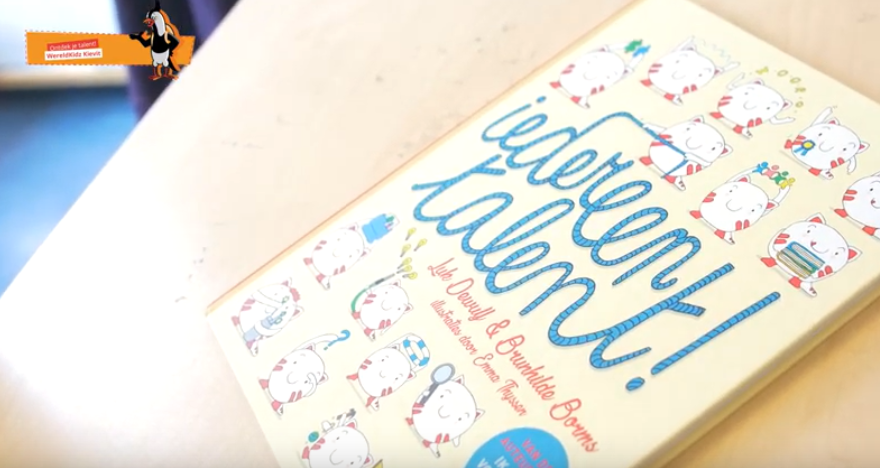 Ontdek je talent!
WereldKidz Kievit
iedereen
talent!
Luk Dewulf & Brunhilde Borms
illustraties door Emma Thyssen